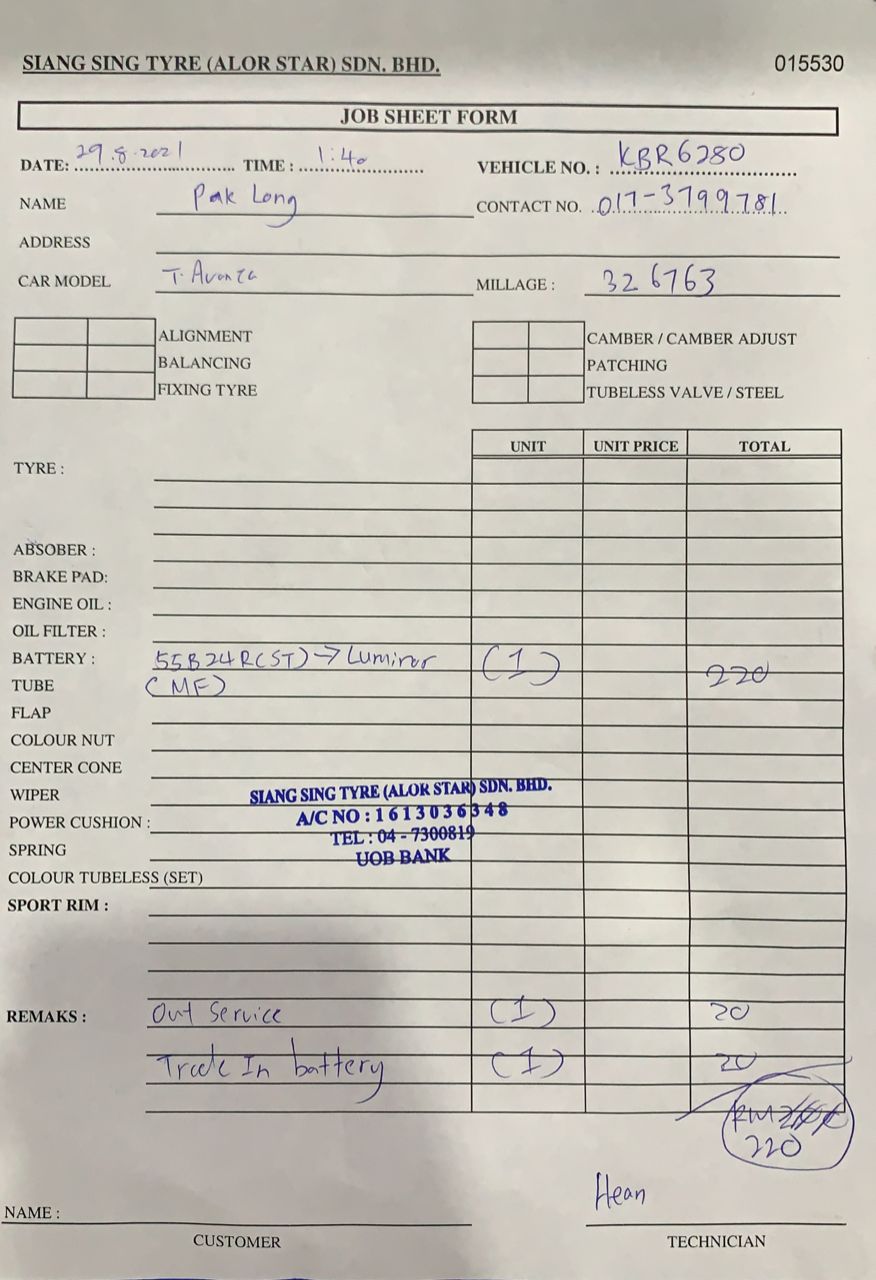 SIANG SING TYRE (ALOR STAR) SDN. BHD. 015530
JOB SHEET FORM
DATE: 29.8.2021 TIME : 1:40 VEHICLE NO. : KBR6280
NAME Pak Long CONTACT NO. 017-3799781
ADDRESS
CAR MODEL T. Avanza MILLAGE : 326763
ALIGNMENT CAMBER / CAMBER ADJUST
BALANCING PATCHING
FIXING TYRE TUBELESS VALVE / STEEL
UNIT UNIT PRICE TOTAL
TYRE :
ABSOBER :
BRAKE PAD:
ENGINE OIL :
OIL FILTER :
BATTERY : 55B24R(ST) → Luminor (1) 220
TUBE (MF)
FLAP
COLOUR NUT
CENTER CONE
WIPER SIANG SING TYRE (ALOR STAR) SDN. BHD.
A/C NO : 1613036348
POWER CUSHION :
TEL : 04 - 7300819
SPRING UOB BANK
COLOUR TUBELESS (SET)
SPORT RIM :
REMAKS : Out Service (1) 20
Trade In battery (1) 20
RM
220
Hean
NAME :
CUSTOMER TECHNICIAN